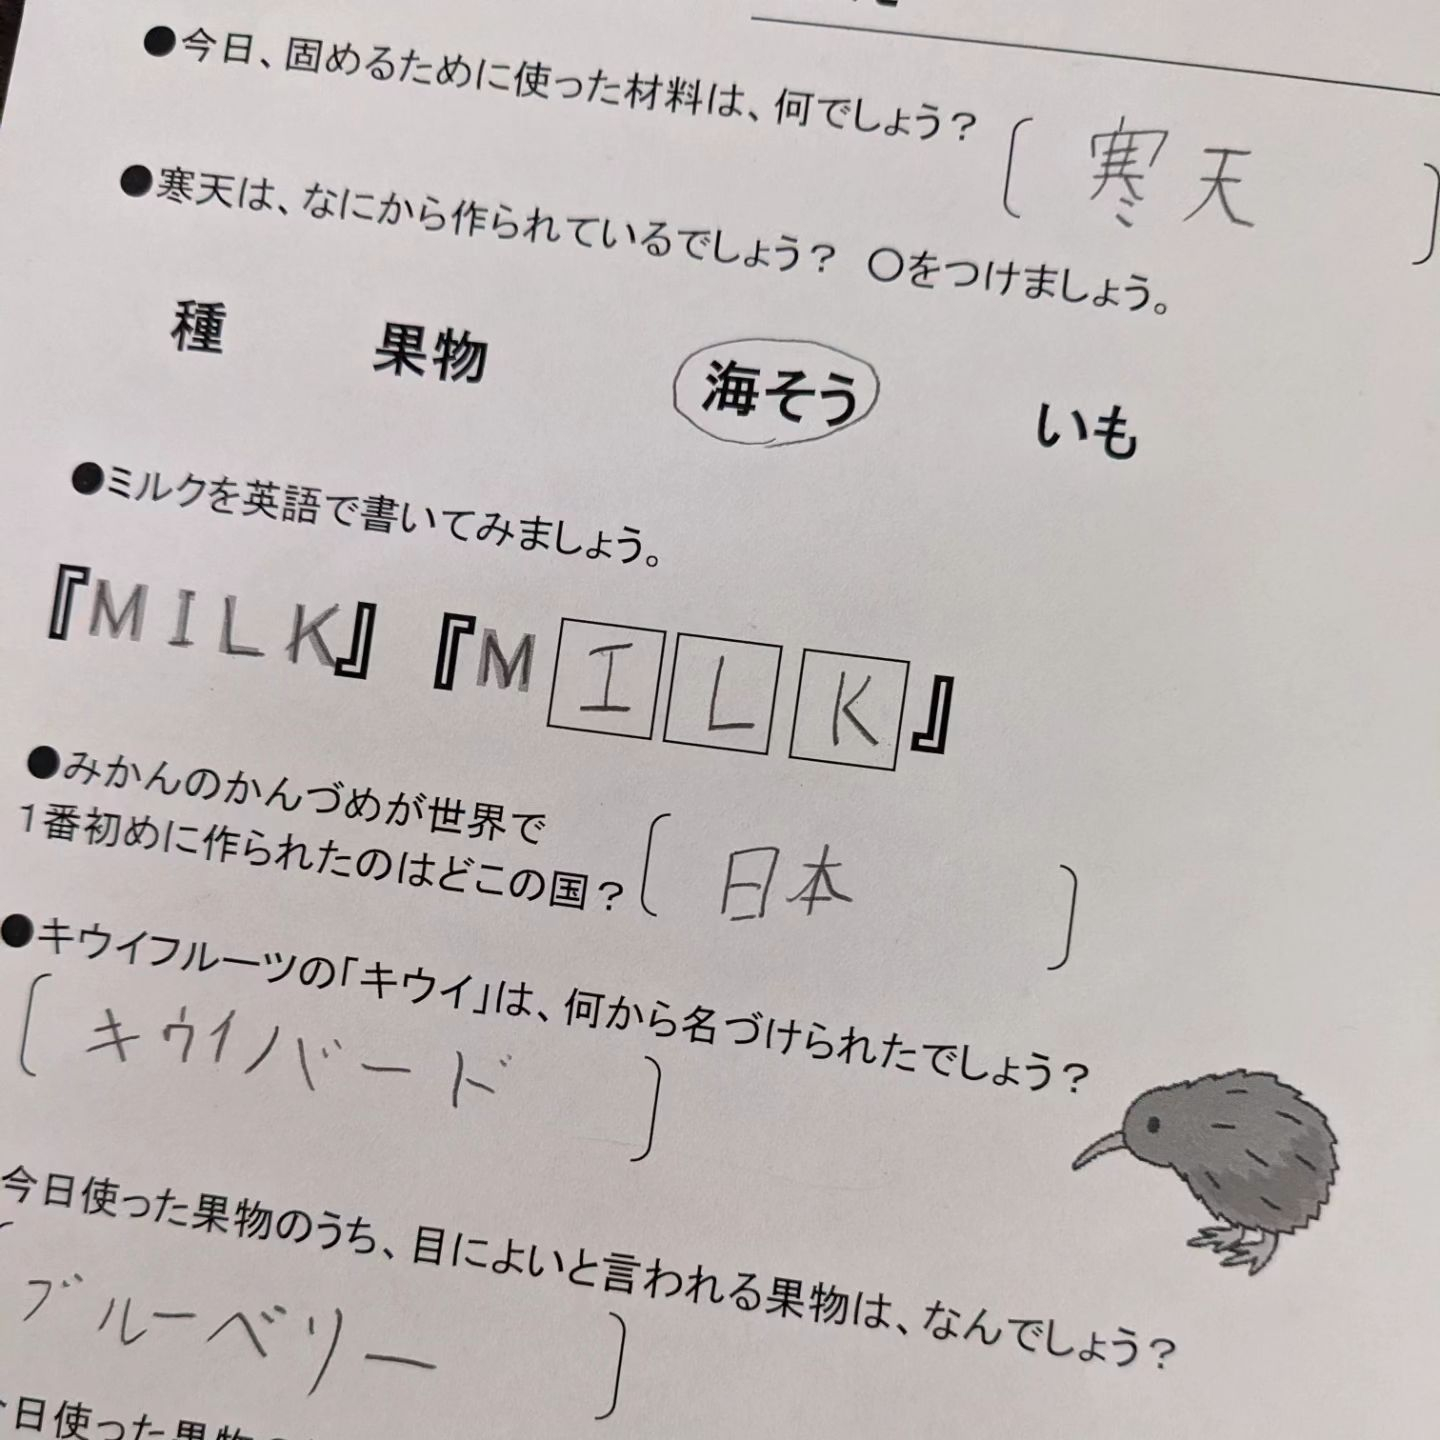 ●今日、固めるために使った材料は、何でしょう？〔寒天〕
●寒天は、なにから作られているでしょう？ ○をつけましょう。
種 果物 海そう いも
●ミルクを英語で書いてみましょう。
『MILK』『MILK』
●みかんのかんづめが世界で
1番初めに作られたのはどこの国？〔日本〕
●キウイフルーツの「キウイ」は、何から名づけられたでしょう？
〔キウイバード〕
今日使った果物のうち、目によいと言われる果物は、なんでしょう？
〔ブルーベリー〕
今日使った果物の